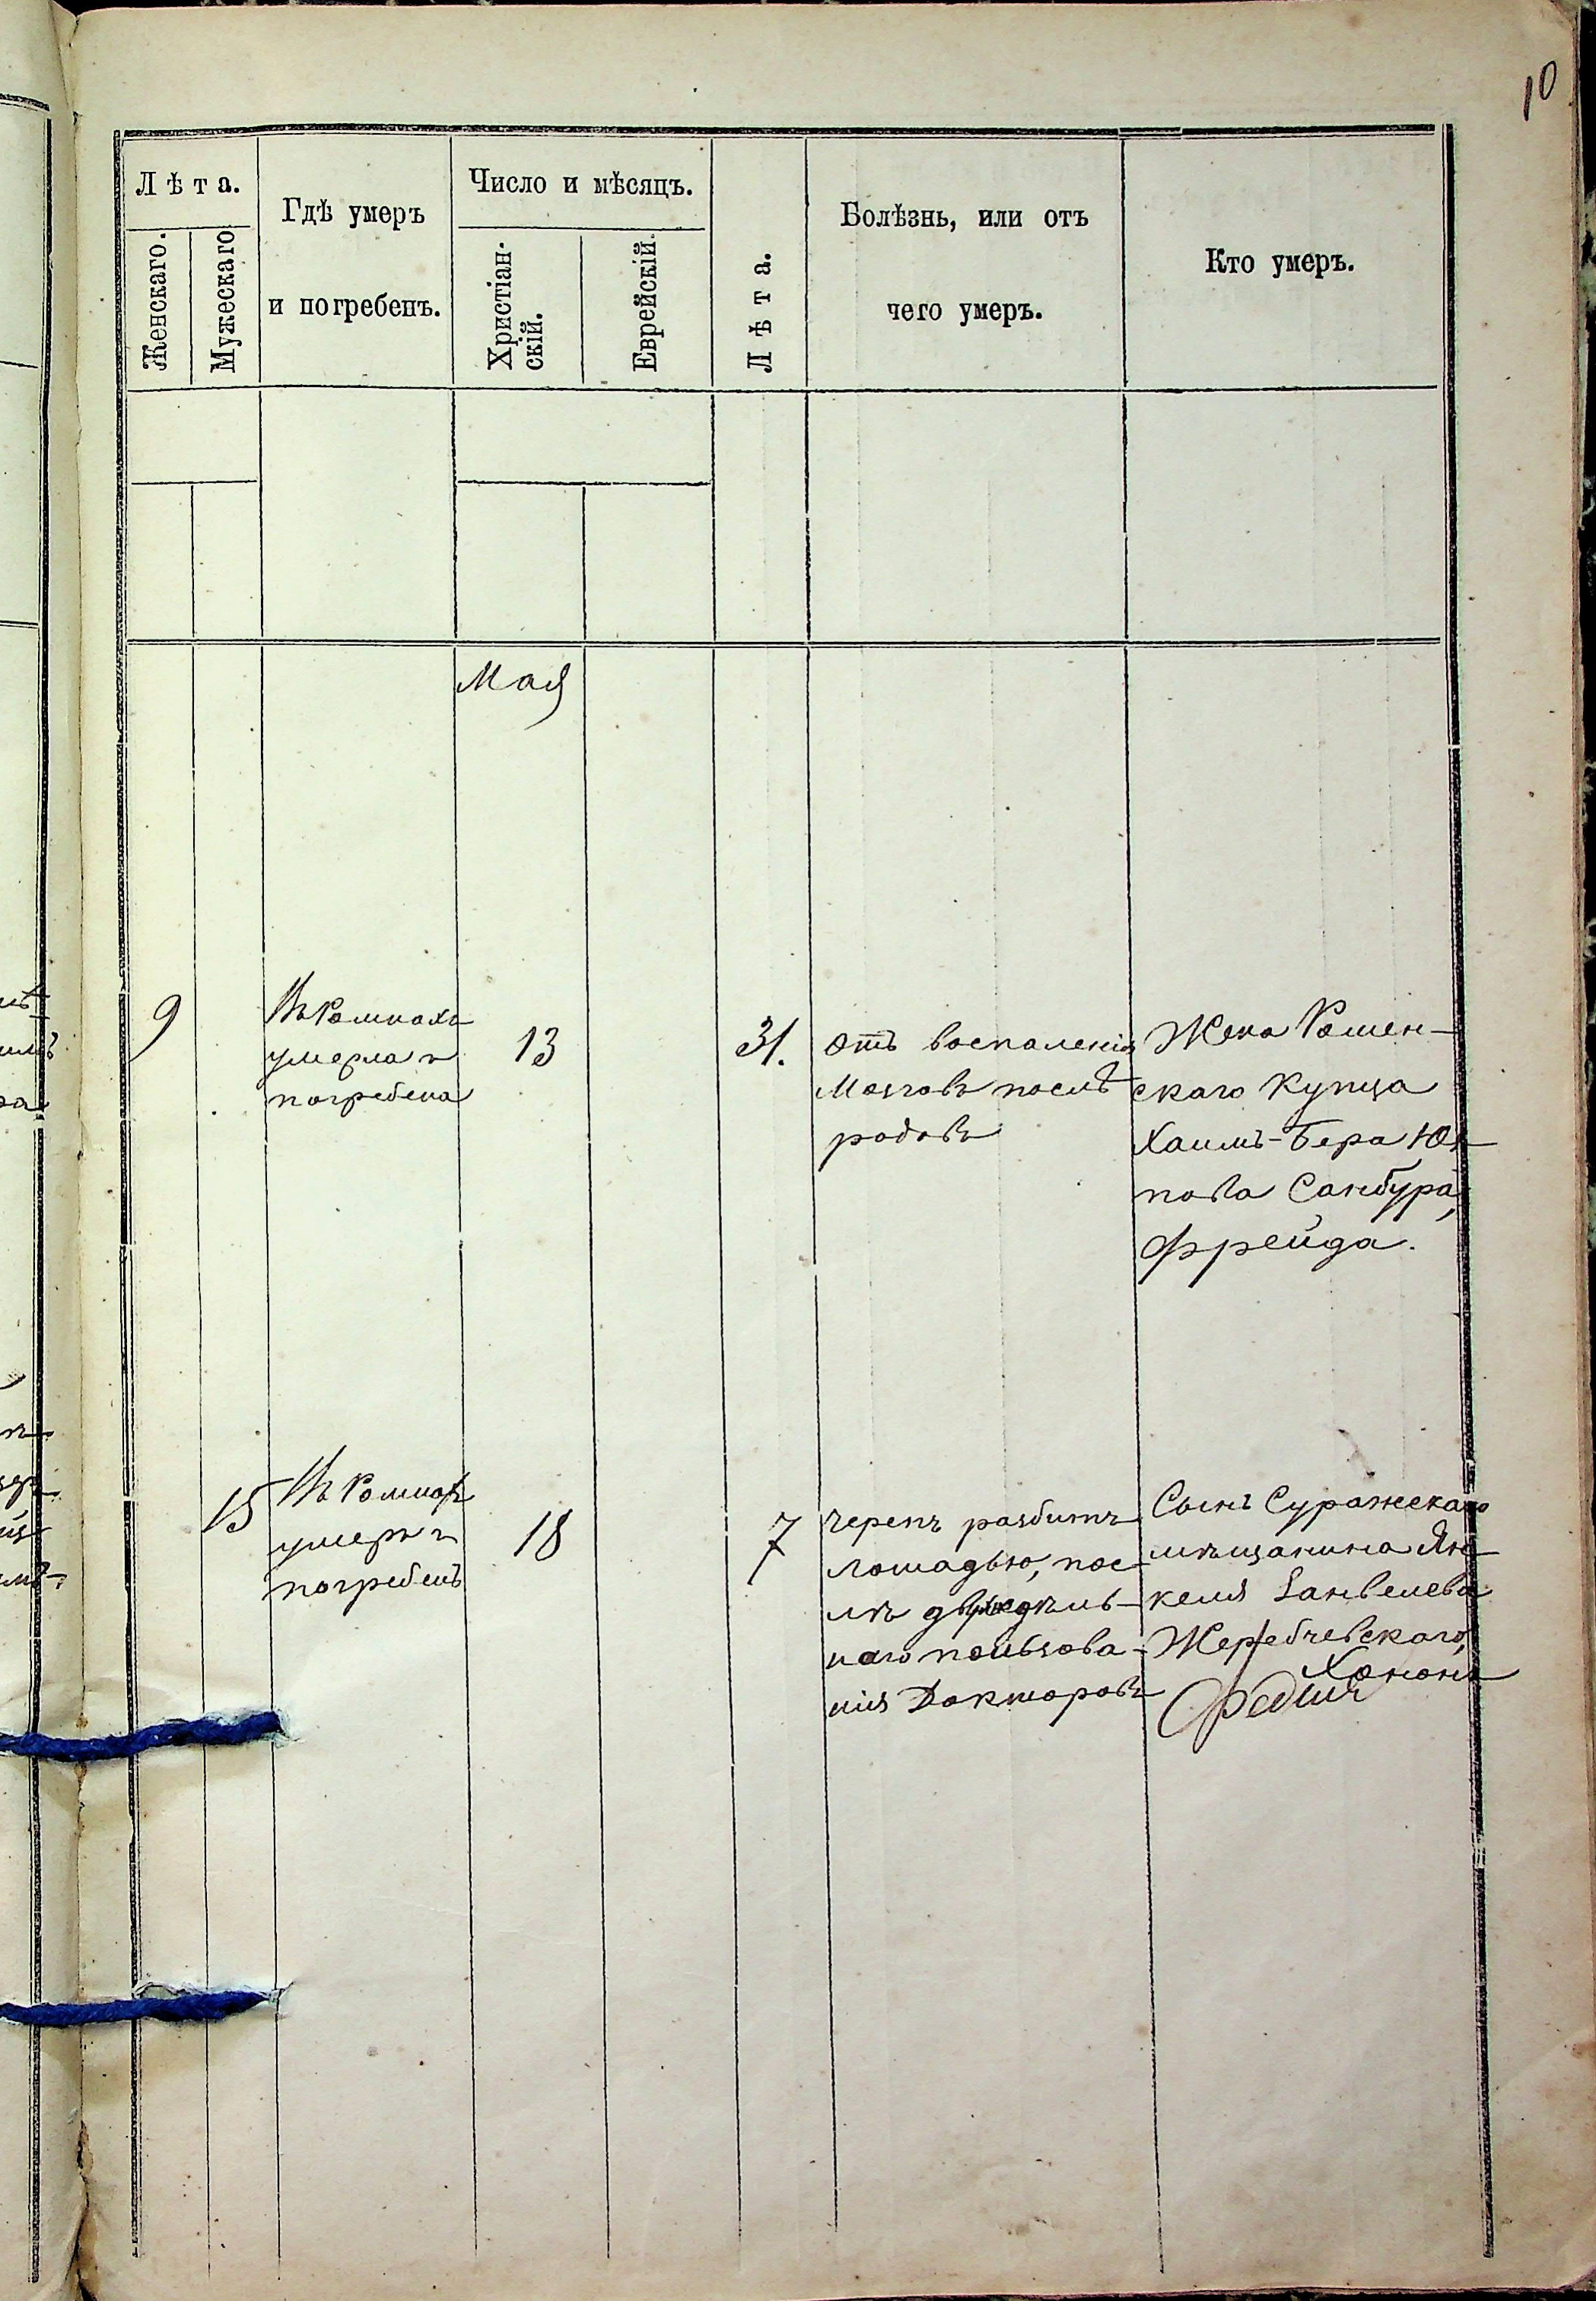 10
Лѣта.
Женскаго.
Мужескаго
Гдѣ умеръ
и погребенъ.
Число и мѣсяцъ.
Христіан-
скій.
Еврейскій.
Лѣта.
Болѣзнь, или отъ
чего умеръ.
Кто умеръ.
Мая
9
Въ Ромнахъ
умерла и
погребена
13
31.
Отъ воспаленія
Мозговъ послѣ
родовъ
Жена Ромен-
скаго Купца
Хаимъ-Бера
пова Санбура,
Фрейда.
15
Въ Ромнахъ
умеръ и
погребенъ
18
7
Черепъ разбитъ
Лошадью, пос-
лѣ двунедѣль-
наго пользова-
нія Докторовъ
Сынъ Суражскаго
мѣщанина Ян-
келя Занвелева
Жеребчевскаго,
Хононъ